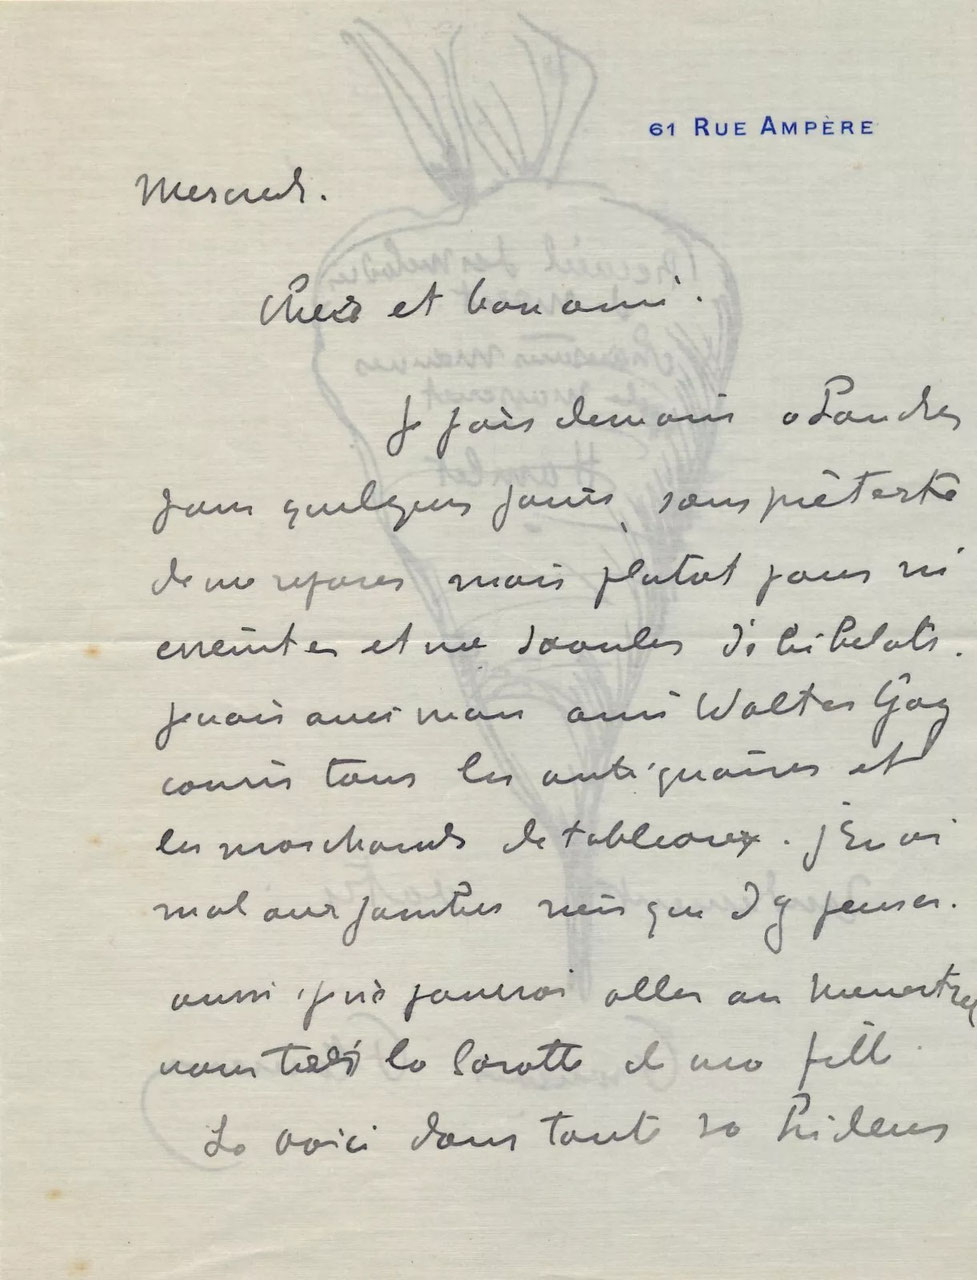 61 RUE AMPÈRE
Mercredi.
Cher et bon ami.
Je pars demain à Londres
pour quelques jours, sous prétexte
de me reposer mais plutôt pour m'
éreinter et me saouler de bibelots.
Je vais avec mon ami Walter Gay
courir tous les antiquaires et
les marchands de tableaux. J'en ai
mal aux jambes rien que d'y penser.
aussi je ne pourrai aller au Menestrel
vous tirer la Carotte de ma fille.
La voici dans toute sa hideur